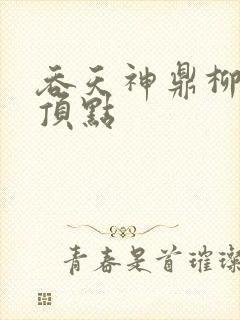 吞天神鼎柳
頂點
青春是首璀璨